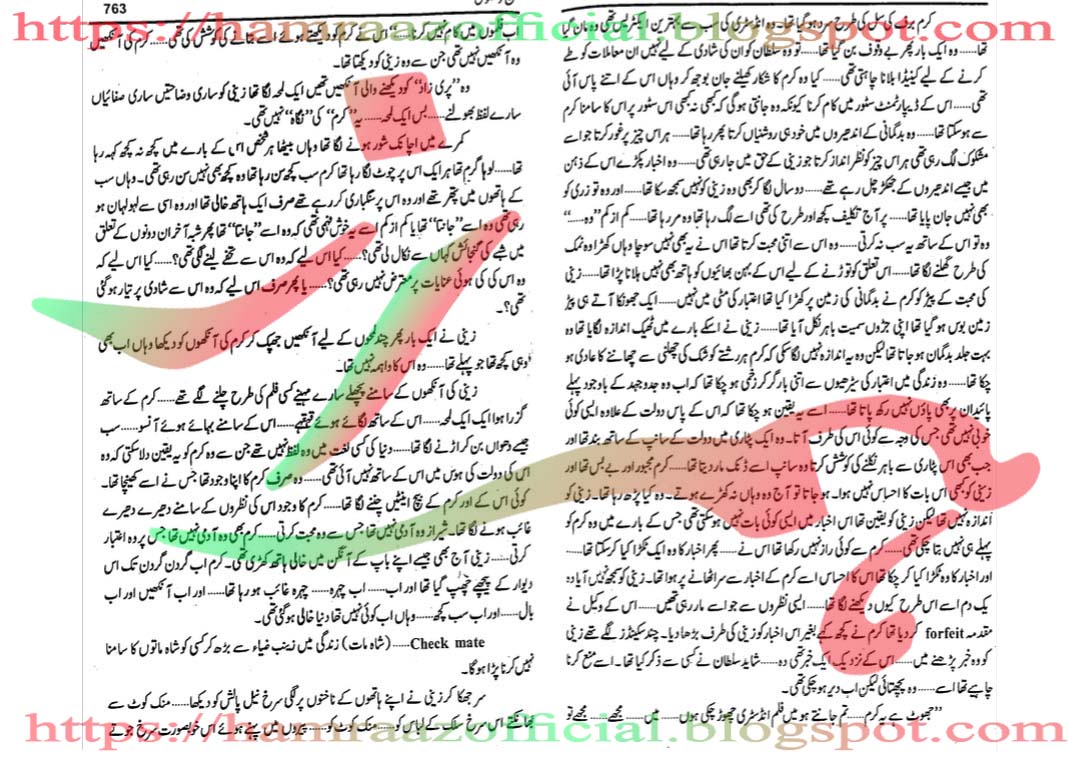 https://hamraazofficial.blogspot.com
کرم برف کی سل کی طرح سرد ہو گیا تھا۔ وہ انڈسٹری کی سب سے بہترین ایکٹریس تھی وہ مان گیا
تھا...... وہ ایک بار پھر بے وقوف بن گیا تھا...... تو وہ سلطان کو ان کی شادی کے لیے نہیں ان معاملات کو طے
کرنے کے لیے کینیڈا بلانا چاہتی تھی...... کیا وہ کرم کا شکار کھیلنے جان بوجھ کر وہاں اس کے اتنے پاس آئی
تھی...... اس کے ڈیپارٹمنٹ سٹور میں کام کرنا کیونکہ وہ جانتی ہوگی کہ کبھی نہ کبھی اس سٹور پر اس کا سامنا کرم
سے ہو سکتا تھا...... وہ بدگمانی کے اندھیروں میں خود ہی روشنیاں کرتا پھر رہا تھا...... ہر اس چیز پر غور کرتا جو اسے
مشکوک لگ رہی تھی ہر اس چیز کو نظر انداز کرتا جو زینی کے حق میں جا رہی تھی...... وہ اخبار پکڑے اس کے ذہن
میں جیسے اندھیروں کے جھکڑ چل رہے تھے...... دو سال لگا کر بھی وہ زینی کو نہیں سمجھ سکا تھا...... اور وہ تو زری کو
بھی نہیں جان پایا تھا...... پر آج تکلیف کچھ اور طرح کی تھی اسے لگ رہا تھا وہ مر رہا تھا...... کم از کم "وہ......"
وہ تو اس کے ساتھ یہ سب نہ کرتی...... وہ اس سے اتنی محبت کرتا تھا اس نے یہ بھی نہیں سوچا وہاں کھڑا وہ نمک
کی طرح گھلنے لگا تھا...... اس تعلق کو توڑنے کے لیے اس کے بہن بھائیوں کو ہاتھ بھی نہیں ہلانا پڑا تھا...... زینی
کی محبت کے پیڑ کو کرم نے بدگمانی کی زمین پر کھڑا کیا تھا اعتبار کی مٹی میں نہیں...... ایک جھونکا آتے ہی پیڑ
زمین بوس ہو گیا تھا اپنی جڑوں سمیت باہر نکل آیا تھا...... زینی نے اسکے بارے میں ٹھیک اندازہ لگایا تھا وہ
بہت جلد بدگمان ہو جاتا تھا لیکن وہ یہ اندازہ نہیں لگا سکی کہ کرم ہر رشتے کو شک کی چھلنی سے چھاننے کا عادی ہو
چکا تھا...... وہ زندگی میں اعتبار کی سیڑھیوں سے اتنی بار گر کر زخمی ہو چکا تھا کہ اب وہ جدوجہد کے باوجود پہلے
پائیدان پر بھی پاؤں نہیں رکھ پاتا تھا...... اسے یہ یقین ہو چکا تھا کہ اس کے پاس دولت کے علاوہ ایسی کوئی
خوبی نہیں تھی جس کی وجہ سے کوئی اس کی طرف آتا۔ وہ ایک پٹاری میں دولت کے سانپ کے ساتھ بند تھا اور
جب بھی اس پٹاری سے باہر نکلنے کی کوشش کرتا وہ سانپ اسے ڈنک مار دیتا تھا...... کرم مجبور اور بے بس تھا اور
زینی کو کبھی اس بات کا احساس نہیں ہوا۔ ہو جاتا تو آج وہ وہاں نہ کھڑے ہوتے۔ وہ کیا پڑھ رہا تھا۔ زینی کو
اندازہ نہیں تھا لیکن زینی کو یقین تھا اس اخبار میں ایسی کوئی بات نہیں ہو سکتی تھی جس کے بارے میں وہ کرم کو
پہلے ہی نہیں بتا چکی تھی...... کرم سے کوئی راز نہیں رکھا تھا اس نے...... پھر اخبار کا وہ ایک ٹکڑا کیا کر سکتا تھا......
اور اخبار کا وہ ٹکڑا کیا کر چکا تھا اس کا احساس اسے کرم کے اخبار سے سر اٹھانے پر ہوا تھا۔ زینی کو سمجھ نہیں آیا وہ
یک دم اسے اس طرح کیوں دیکھنے لگا تھا...... ایسی نظروں سے جو اسے مار رہی تھیں...... اس کے وکیل نے
مقدمہ forfeit کر دیا تھا کرم نے کچھ کہے بغیر اس اخبار کو زینی کی طرف بڑھا دیا۔ چند سیکنڈز لگے تھے زینی
کو وہ خبر پڑھنے میں...... اس کے نزدیک ایک خبر تھی وہ...... شاید سلطان نے کسی سے ذکر کیا تھا۔ اسے منع کرنا
چاہیے تھا اسے...... وہ پچھتائی لیکن اب دیر ہو چکی تھی۔
"جھوٹ ہے یہ کرم...... تم جانتے ہو میں فلم انڈسٹری چھوڑ چکی ہوں...... میں...... مجھے...... مجھے تو
763
اب فلموں میں کام نہیں کرنا......" اس نے کرم کو دیکھتے ہوئے اسے بتانے کی کوشش کی تھی...... کرم کی آنکھیں
وہ آنکھیں نہیں تھی جن سے وہ زینی کو دیکھتا تھا۔
وہ "پری زاد" کو دیکھنے والی آنکھیں تھیں ایک لمحہ لگا تھا زینی کو ساری وضاحتیں ساری صفائیاں
سارے لفظ بھولنے...... بس ایک لمحہ...... یہ "کرم" کی "نگاہ" نہیں تھی۔
کمرے میں اچانک شور ہونے لگا تھا وہاں بیٹھا ہر شخص اس کے بارے میں کچھ نہ کچھ کہہ رہا
تھا...... لوہا گرم تھا ہر ایک اس پر چوٹ لگا رہا تھا کرم سب کچھ سن رہا تھا وہ کچھ بھی نہیں سن رہی تھی۔ وہاں سب
کے ہاتھوں میں پتھر تھے اور وہ اس پر سنگباری کر رہے تھے صرف ایک ہاتھ خالی تھا اور وہ اسی سے لہولہان ہو
رہی تھی وہ اسے "جانتا" تھا یا کم از کم اسے یہ خوش فہمی تھی کہ وہ اسے "جانتا" تھا پھر شبہ آخر ان دونوں کے تعلق
میں شبے کی گنجائش کہاں سے نکال لی تھی؟...... کیا اس لیے کہ وہ اس سے تحفے لینے لگی تھی؟...... کیا اس لیے کہ
وہ اس کی کی ہوئی عنایات پر معترض نہیں رہی تھی؟...... یا پھر صرف اس لیے کہ وہ اس سے شادی پر تیار ہو گئی
تھی؟۔
زینی نے ایک بار پھر چند لمحوں کے لیے آنکھیں جھپک کر کرم کی آنکھوں کو دیکھا وہاں اب بھی
وہی کچھ تھا جو پہلے تھا...... وہ اس کا واہمہ نہیں تھا۔
زینی کی آنکھوں کے سامنے پچھلے سارے مہینے کسی فلم کی طرح چلنے لگے تھے...... کرم کے ساتھ
گزرا ہوا ایک ایک لمحہ...... اس کے ساتھ لگائے ہوئے قہقہے...... اس کے سامنے بہائے ہوئے آنسو...... سب
جیسے دھواں بن کر اڑنے لگا تھا...... دنیا کی کسی لغت میں وہ لفظ نہیں تھے جن سے وہ کرم کو یہ یقین دلا سکتی کہ وہ
اس کی دولت کی ہوس میں اس کے ساتھ نہیں آئی تھی...... وہ صرف کرم کا اپنا وجود تھا جس نے اسے کھینچا تھا۔
کوئی اس کے اور کرم کے بیچ اینٹیں چننے لگا تھا...... کرم کا وجود اس کی نظروں کے سامنے دھیرے دھیرے
غائب ہونے لگا تھا۔ شیراز وہ آدمی نہیں تھا جس سے وہ محبت کرتی...... کرم بھی وہ آدمی نہیں تھا جس پر وہ اعتبار
کرتی...... زینی آج بھی جیسے اپنے باپ کے آنگن میں خالی ہاتھ کھڑی تھی۔ کرم اب گردن گردن تک اس
دیوار کے پیچھے چھپ گیا تھا اور اب...... اب چہرہ...... چہرہ غائب ہو رہا تھا...... اور اب آنکھیں اور اب
بال...... اور اب سب کچھ...... وہاں اب کوئی نہیں تھا دنیا خالی ہو گئی تھی۔
Check mate...... (شاہ مات) زندگی میں زینب ضیاء سے بڑھ کر کسی کو شاہ ماتوں کا سامنا
نہیں کرنا پڑا ہوگا۔
سر جھکا کر زینی نے اپنے ہاتھوں کے ناخنوں پر لگی سرخ نیل پالش کو دیکھا...... منک کوٹ سے
جھانکتے اس سرخ سلک کے لباس کو...... منک کوٹ کو...... پیروں میں پہنے ہوئے اس خوبصورت سرخ جوتے
https://hamraazofficial.blogspot.com